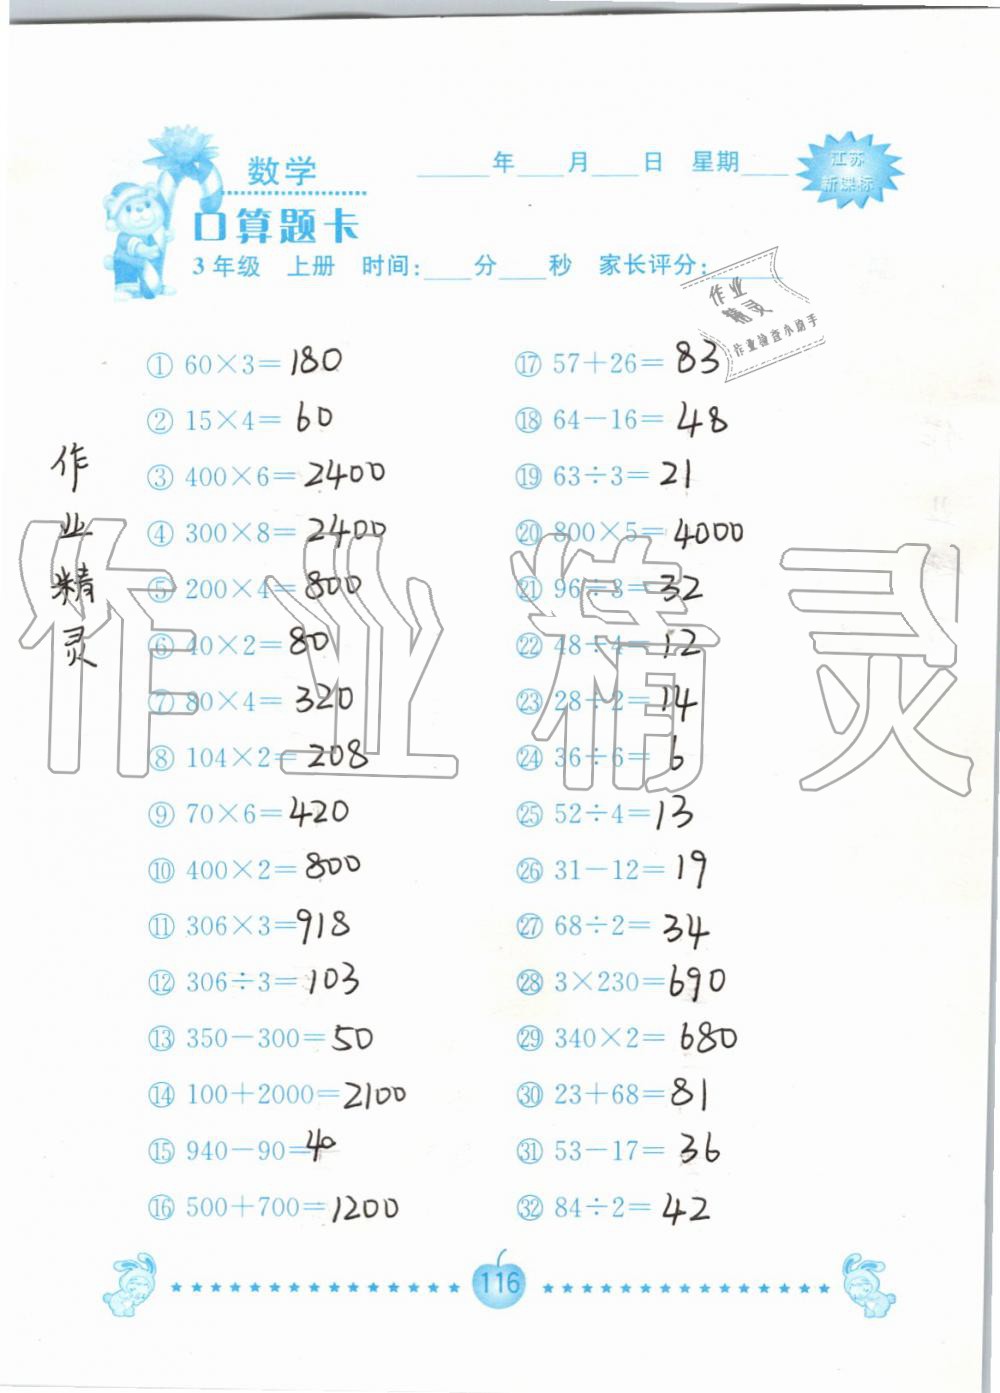 数学
____年____月____日 星期____
江苏
新课标
口算题卡
3年级 上册 时间:____分____秒 家长评分:____
作业
精灵
作业检查小助手
① 60×3=180
② 15×4=60
③ 400×6=2400
④ 300×8=2400
⑤ 200×4=800
⑥ 40×2=80
⑦ 80×4=320
⑧ 104×2=208
⑨ 70×6=420
⑩ 400×2=800
⑪ 306×3=918
⑫ 306÷3=103
⑬ 350-300=50
⑭ 100+2000=2100
⑮ 940-90=40
⑯ 500+700=1200
⑰ 57+26=83
⑱ 64-16=48
⑲ 63÷3=21
⑳ 800×5=4000
㉑ 96÷3=32
㉒ 48÷4=12
㉓ 28÷2=14
㉔ 36÷6=6
㉕ 52÷4=13
㉖ 31-12=19
㉗ 68÷2=34
㉘ 3×230=690
㉙ 340×2=680
㉚ 23+68=81
㉛ 53-17=36
㉜ 84÷2=42
作业精灵
作业精灵
116